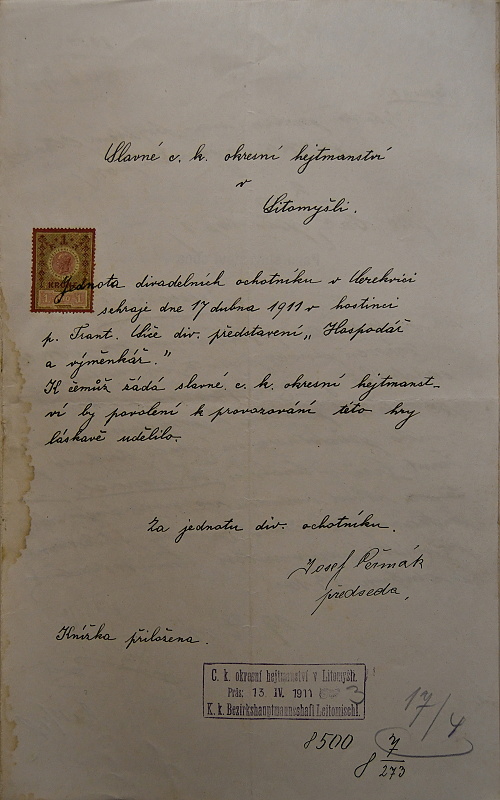 Slavné c. k. okresní hejtmanství
v
Litomyšli.
1
KRONE
Jednota divadelních ochotníku v Cerekvici
sehraje dne 17 dubna 1911 v hostinci
p. Frant. div. představení „Hospodář
a výměnkář."
K čemuž žádá slavné c. k. okresní hejtmanst-
ví by povolení k provozování této hry
láskavě udělilo.
Za jednotu div. ochotníku.
Josef Peřmák
předseda.
Knížka přiložena.
C. k. okresní hejtmanství v Litomyšli.
Präs: 13 IV. 1911
K. k. Bezirkshauptmannschaft Leitomischl.
17/4
8500
8 7/273